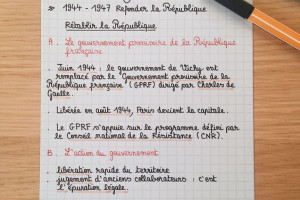 » 1944 - 1947 Refonder la République
Rétablir la République
A. Le gouvernement provisoire de la République
française
Juin 1944 : le gouvernement de Vichy est
remplacé par le "Gouvernement provisoire de la
République française" (GPRF) dirigé par Charles de
Gaulle.
. Libérée en août 1944, Paris devient la capitale.
. Le GPRF s'appuie sur le programme défini par
le Conseil national de la Résistance (CNR).
B. L'action du gouvernement
. libération rapide du territoire
. jugement d'anciens collaborateurs : c'est
l'épuration légale.